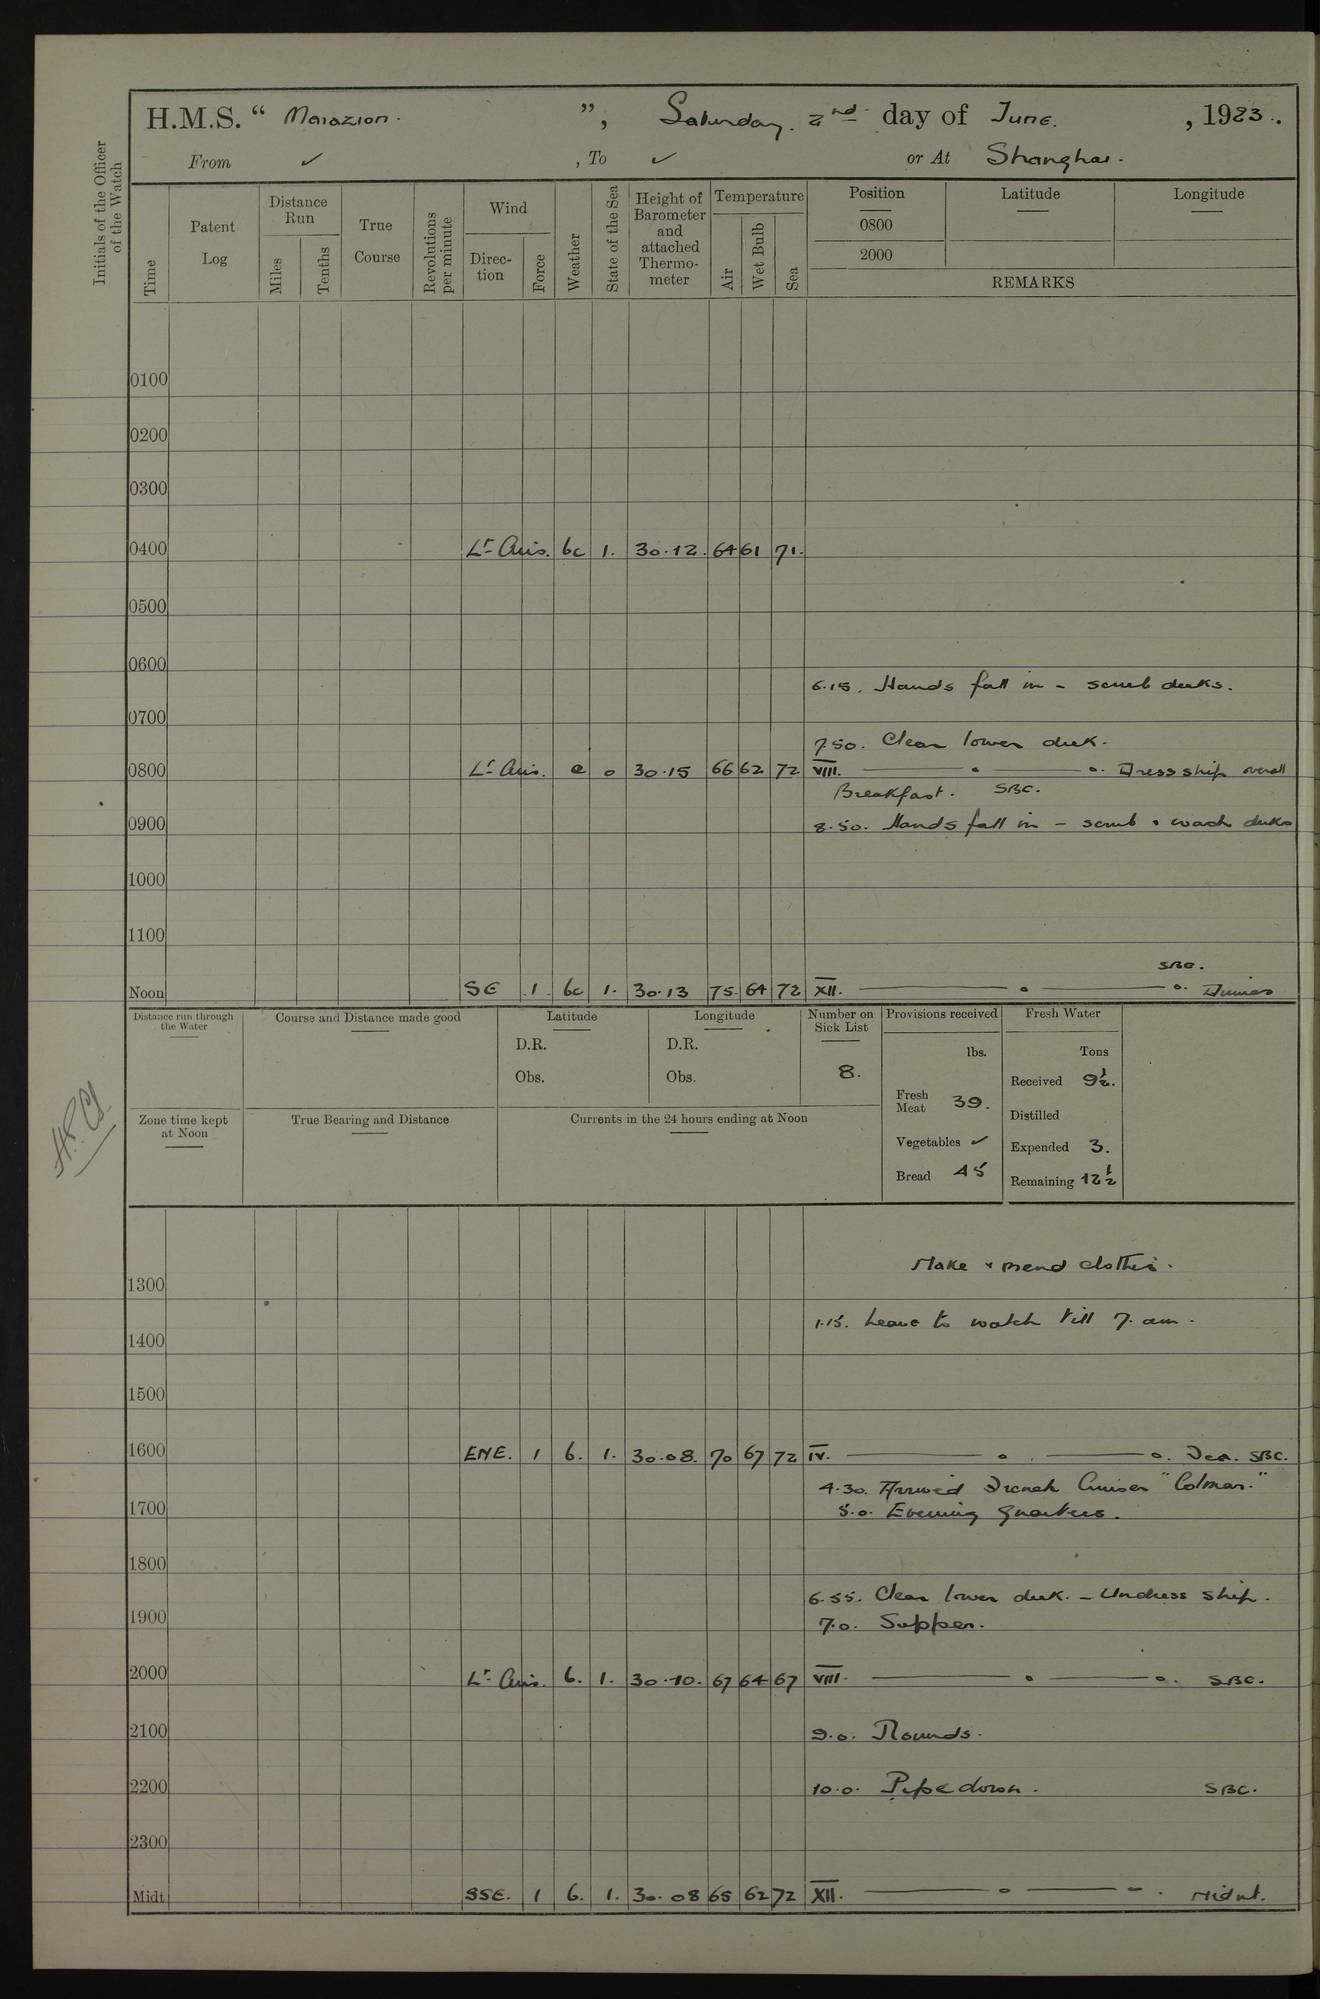 H.M.S. “ Marazion. ”, Saturday. 2nd day of June. , 1923.
From ✓ , To ✓ or At Shanghai.
Initials of the Officer of the Watch
Time
Patent Log
Distance Run
Miles
Tenths
True Course
Revolutions per minute
Wind
Direction
Force
Weather
State of the Sea
Height of Barometer and attached Thermometer
Temperature
Air
Wet Bulb
Sea
Position Latitude Longitude
0800
2000
REMARKS
0100
0200
0300
0400 Lt Airs. bc 1. 30.12. 64 61 71.
0500
0600
6.15. Hands fall in - scrub decks.
0700
7.50. Clear lower deck.
0800 Lt Airs. c 0 30.15 66 62 72 VIII. Dress ship overall
Breakfast. SBC.
0900 8.50. Hands fall in - scrub & wash decks
1000
1100
SBC.
Noon SE 1 bc 1. 30.13 75. 64 72 XII. Dinner
Distance run through the Water
Course and Distance made good
Latitude
D.R.
Obs.
Longitude
D.R.
Obs.
Number on Sick List
8.
Provisions received
lbs.
Fresh Meat 39.
Vegetables ✓
Bread 45
Fresh Water
Tons
Received 9½.
Distilled
Expended 3.
Remaining 12½
Zone time kept at Noon
True Bearing and Distance
Currents in the 24 hours ending at Noon
Make & mend clothes.
1300
1.15. Leave to watch till 7. am.
1400
1500
1600 ENE. 1 b. 1. 30.08. 70 67 72 IV. Tea. SBC.
4.30. Arrived French Cruiser "Colmar."
1700 5.0. Evening Quarters.
1800
6.55. Clear lower deck. - Undress ship.
1900 7.0. Supper.
2000 Lt Airs. b. 1. 30.10. 67 64 67 VIII. SBC.
2100 9.0. Rounds.
2200 10.0. Pipe down. SBC.
2300
Midt SSE. 1 b. 1. 30.08 65 62 72 XII. Midnt.